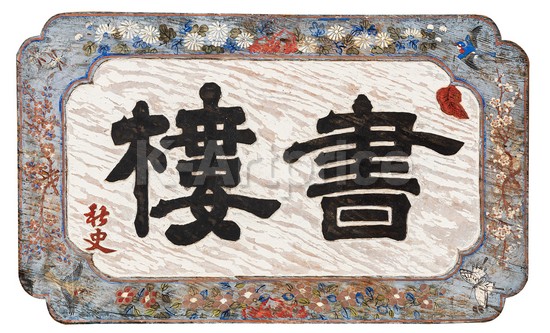 書樓
秋史
K-Artprice